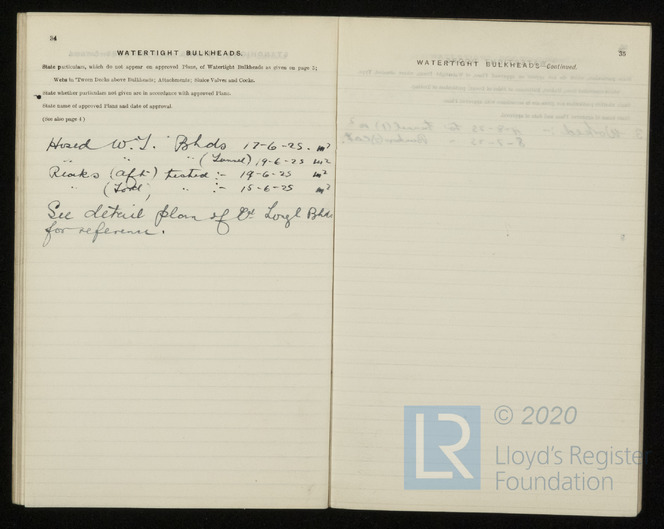 34
WATERTIGHT BULKHEADS.
State particulars, which do not appear on approved Plans, of Watertight Bulkheads as given on page 2;
Webs in 'Tween Decks above Bulkheads; Attachments; Sluice Valves and Cocks.
State whether particulars not given are in accordance with approved Plans.
State name of approved Plans and date of approval.
(See also page 4)
Hosed W.T. Bhds 17-6-25.
" " (Tunnel) 19-6-25
Peaks (aft) tested :- 19-6-25
" (Fore) " :- 15-6-25
See detail plan of Longl Bhds
for reference.
35
WATERTIGHT BULKHEADS—Continued.
LR
© 2020
Lloyd's Register
Foundation